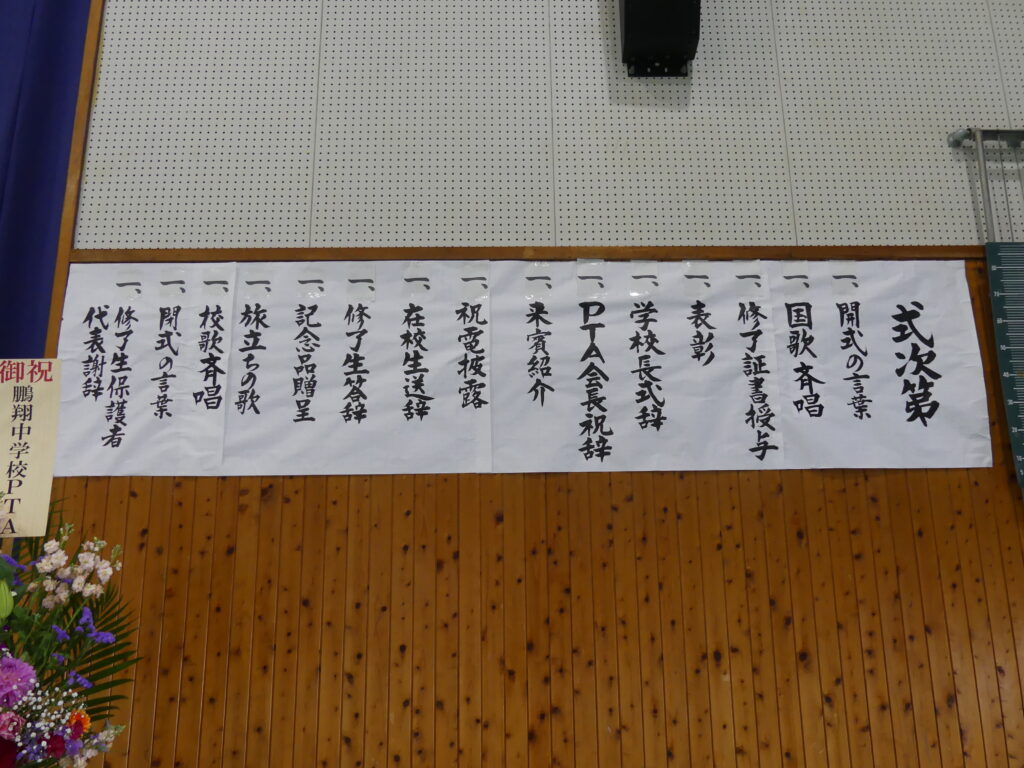 式次第
一、開式の言葉
一、国歌斉唱
一、修了証書授与
一、表彰
一、学校長式辞
一、PTA会長祝辞
一、来賓紹介
一、祝電披露
一、在校生送辞
一、修了生答辞
一、記念品贈呈
一、旅立ちの歌
一、校歌斉唱
一、閉式の言葉
一、修了生保護者
代表謝辞
御祝
鵬翔中学校PTA